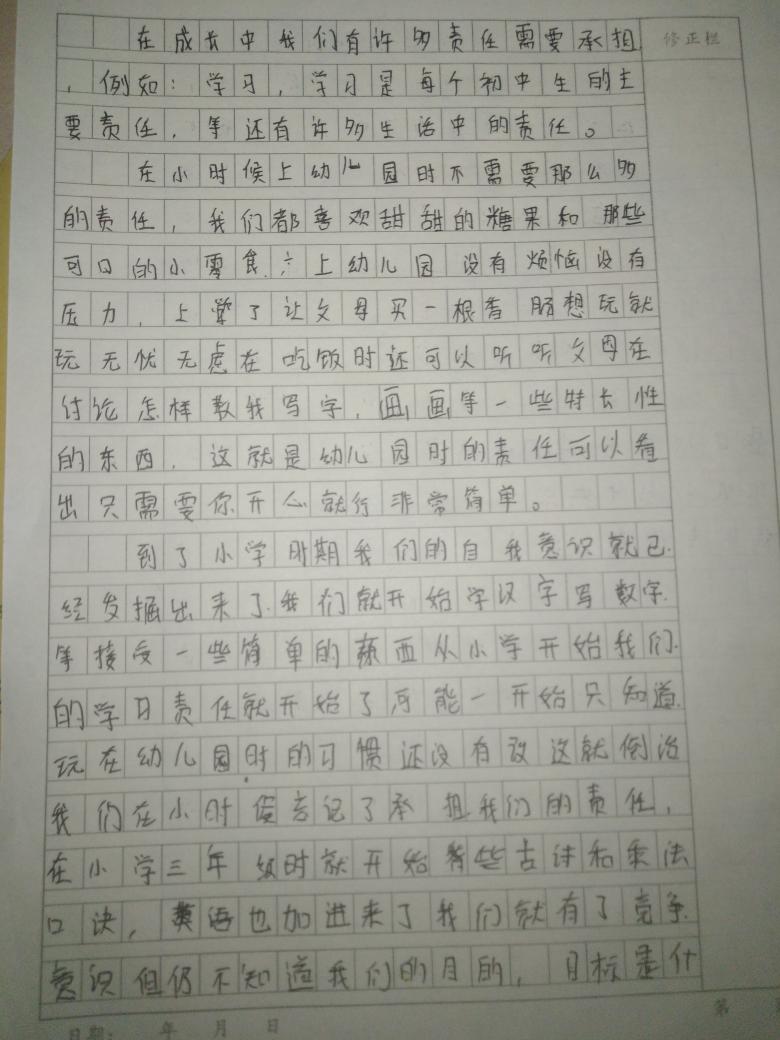 在成长中我们有许多责任需要承担
修正栏
，例如：学习，学习是每个初中生的主
要责任，等还有许多生活中的责任。
在小时候上幼儿园时不需要那么多
的责任，我们都喜欢甜甜的糖果和那些
可口的小零食.上幼儿园没有烦恼没有
压力，上学了让父母买一根香肠想玩就
玩无忧无虑在吃饭时还可以听听父母在
讨论怎样教我写字，画画等一些特长性
的东西，这就是幼儿园时的责任可以看
出只需要你开心就行非常简单。
到了小学时期我们的自我意识就已
经发掘出来了.我们就开始学汉字写数字
等接受一些简单的东西从小学开始我们
的学习责任就开始了可能一开始只知道
玩在幼儿园时的习惯还没有改这就倒治
我们在小时侯忘记了承担我们的责任，
在小学三年级时就开始背些古诗和乘法
口诀，英语也加进来了我们就有了竞争
意识但仍不知道我们的目的，目标是什
第
日期： 年 月 日